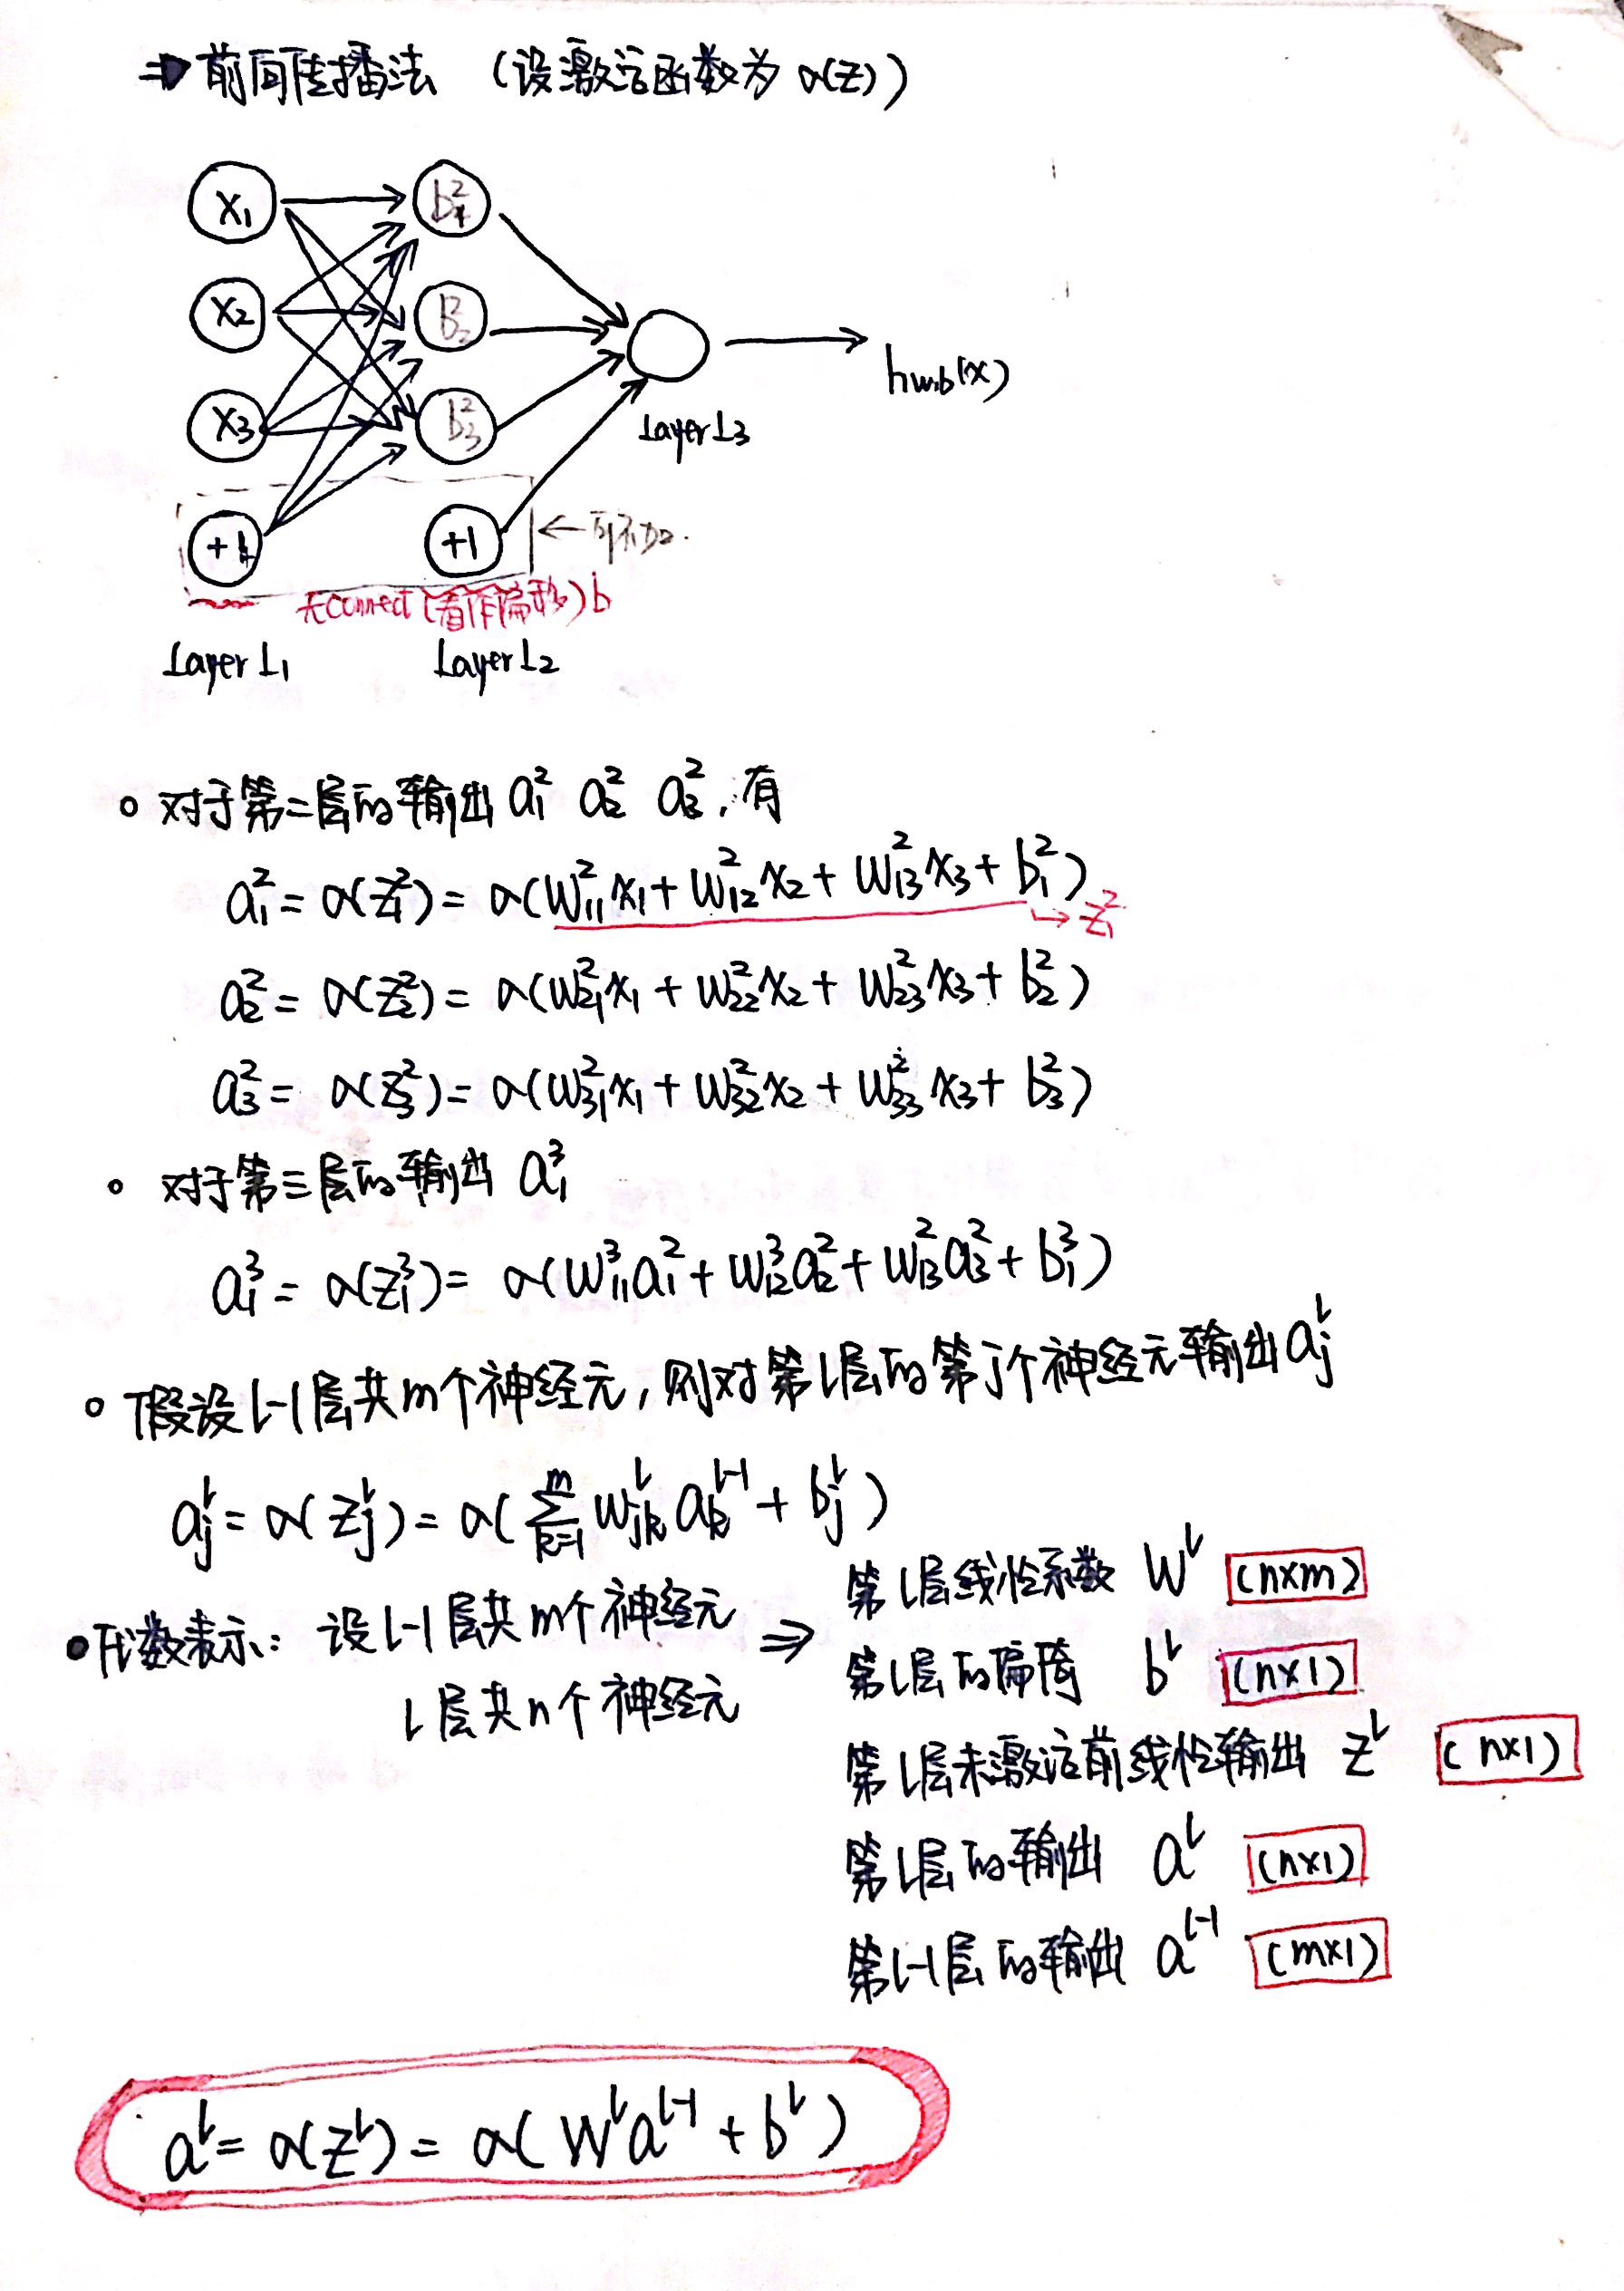 ⇒ 前向传播法 (设激活函数为 α(z))
x₁ b₁²
x₂ b₂²
h_{w,b}(x)
x₃ b₃²
Layer L₃
+1 +1 ← 可不加.
无connect (看作偏移) b
Layer L₁ Layer L₂
∘ 对于第二层的输出 a₁² a₂² a₃², 有
a₁² = α(z₁²) = α(w₁₁²x₁ + w₁₂²x₂ + w₁₃²x₃ + b₁²) → z₁²
a₂² = α(z₂²) = α(w₂₁²x₁ + w₂₂²x₂ + w₂₃²x₃ + b₂²)
a₃² = α(z₃²) = α(w₃₁²x₁ + w₃₂²x₂ + w₃₃²x₃ + b₃²)
∘ 对于第三层的输出 a₁³
a₁³ = α(z₁³) = α(w₁₁³a₁² + w₁₂³a₂² + w₁₃²a₃² + b₁³)
∘ 假设 l-1 层共m个神经元, 则对第l层的第j个神经元输出 a_j^l
a_j^l = α(z_j^l) = α(∑_{k=1}^{m} w_{jk}^l a_k^{l-1} + b_j^l)
• 代数表示: 设 l-1 层共m个神经元 ⇒
l 层共n个神经元
第l层线性系数 W^l (n×m)
第l层的偏倚 b^l (n×1)
第l层未激活前线性输出 z^l (n×1)
第l层的输出 a^l (n×1)
第l-1层的输出 a^{l-1} (m×1)
a^l = α(z^l) = α(W^l a^{l-1} + b^l)